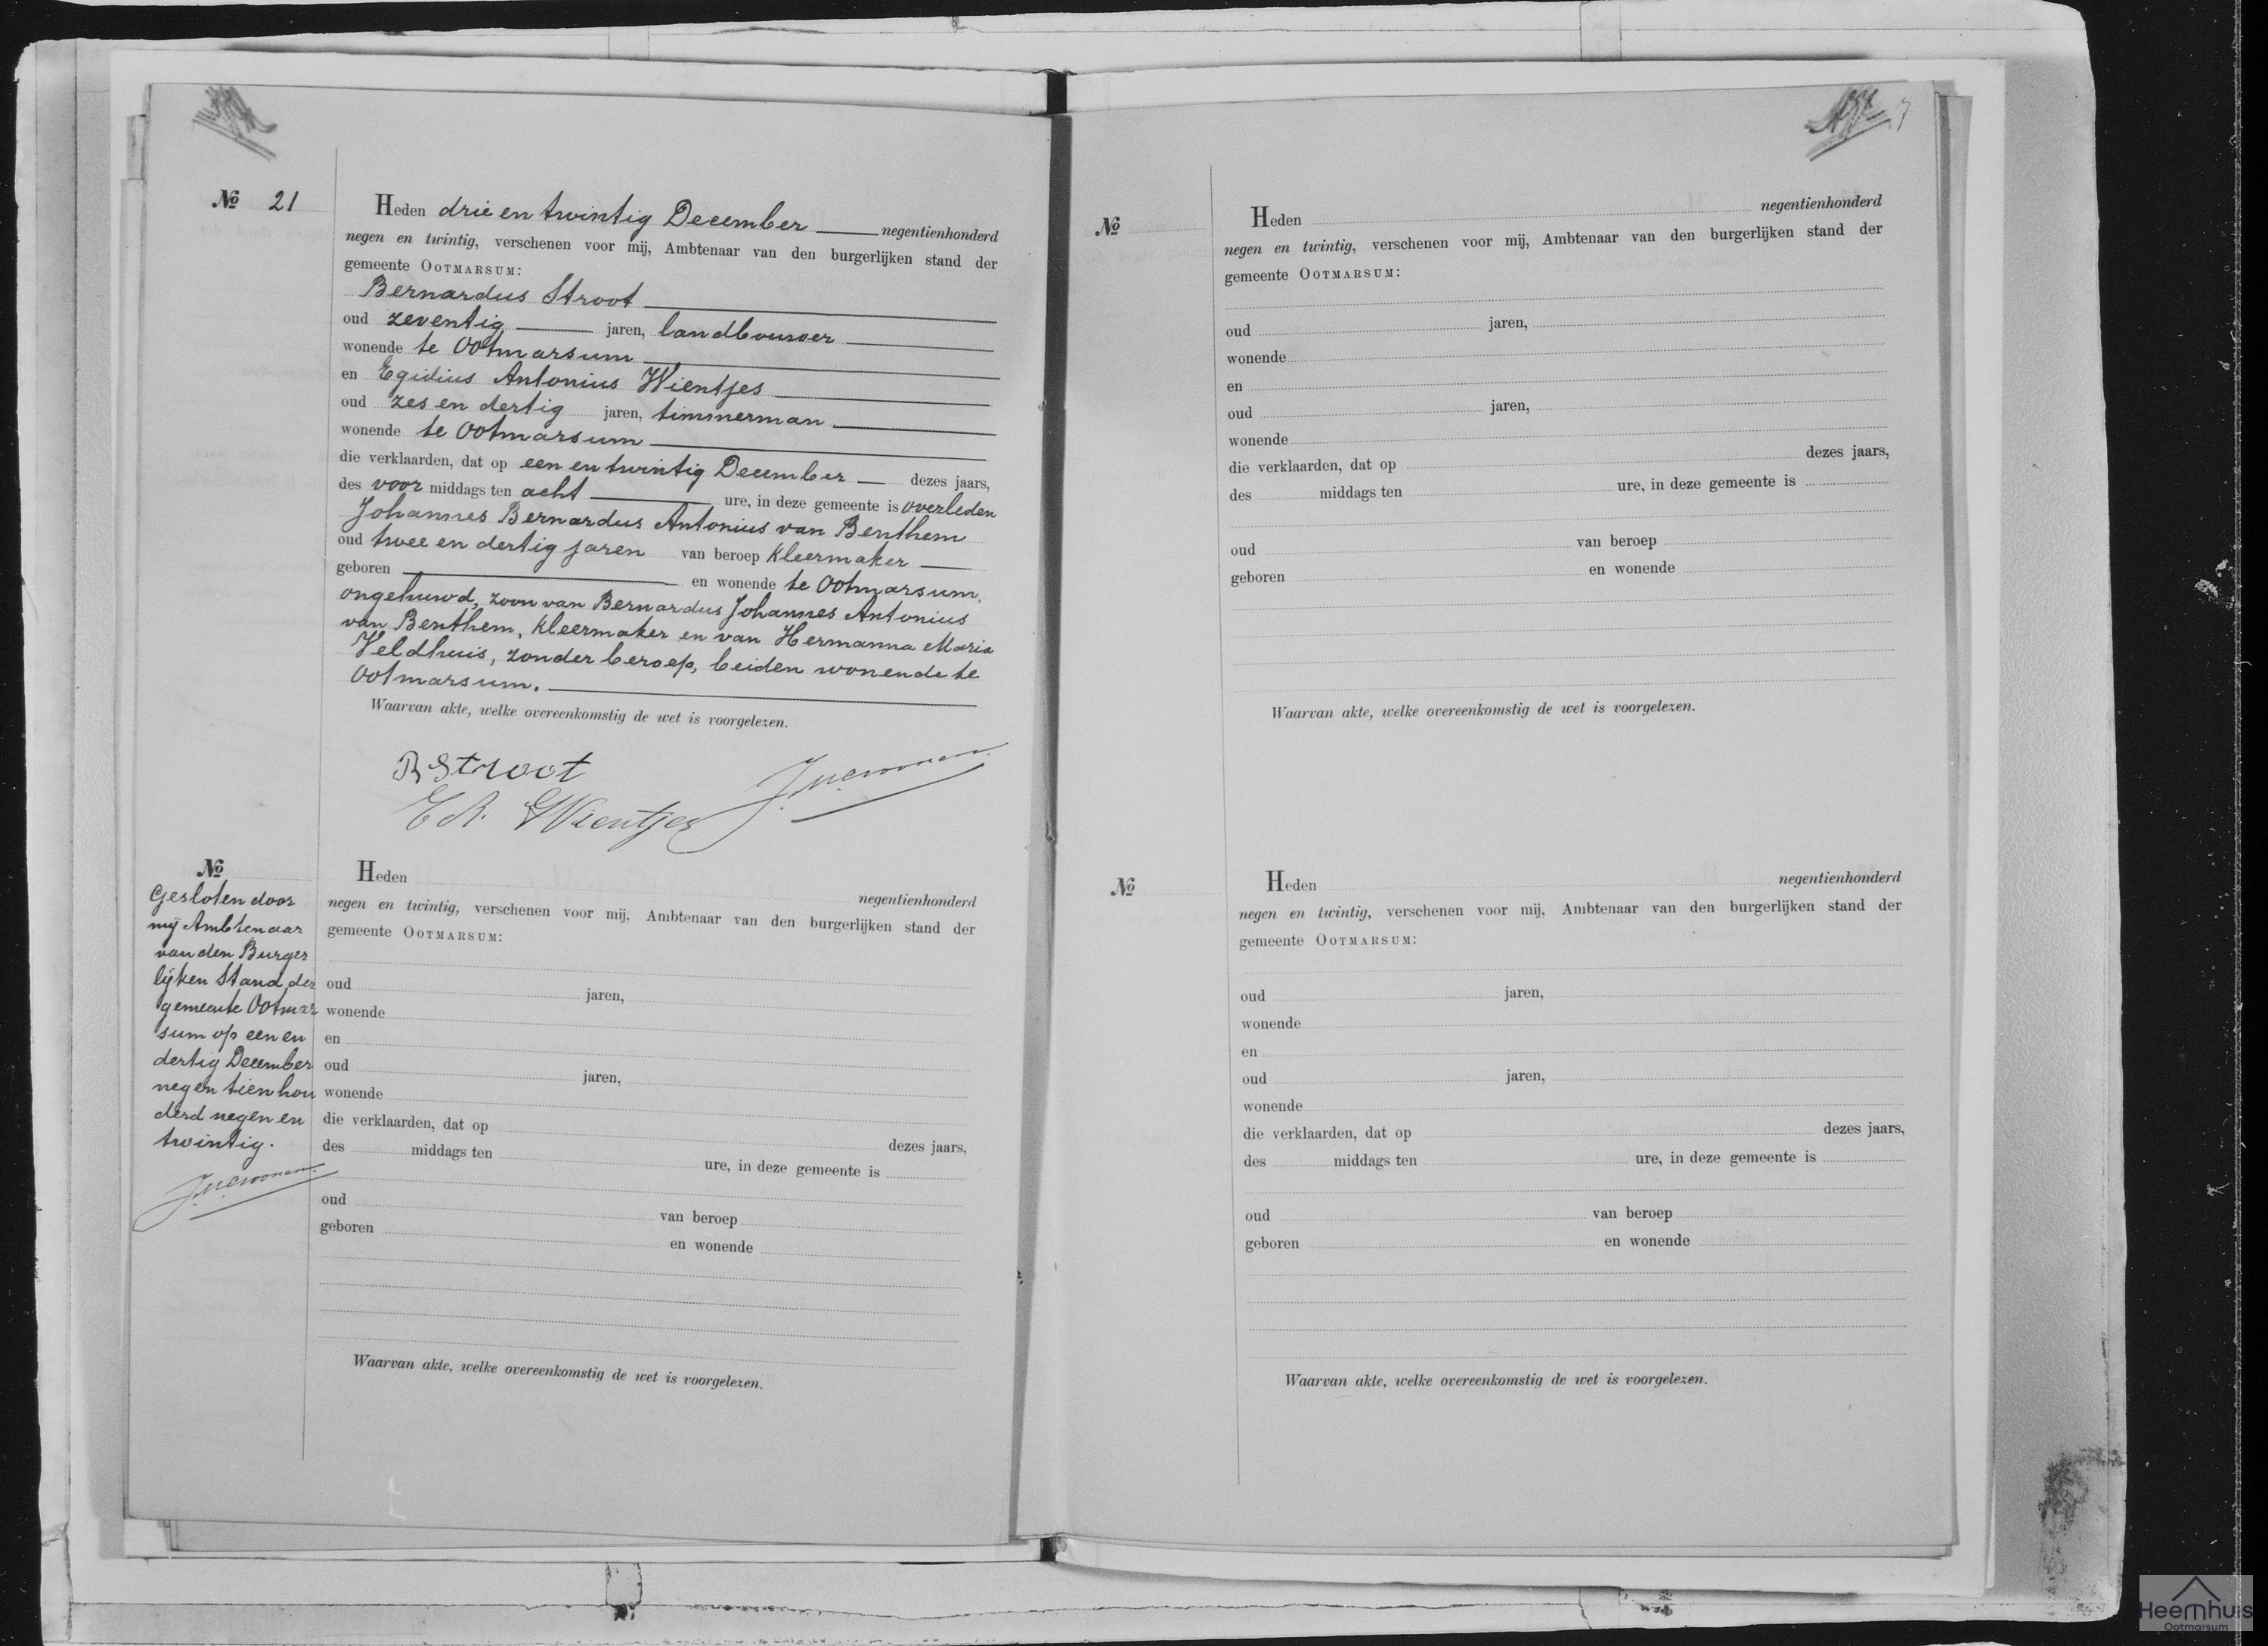 No 21
Heden drie en twintig December negentienhonderd
negen en twintig, verschenen voor mij, Ambtenaar van den burgerlijken stand der
gemeente OOTMARSUM:
Bernardus Stroot
oud zeventig jaren, landbouwer
wonende te Ootmarsum
en Egidius Antonius Wientjes
oud zes en dertig jaren, timmerman
wonende te Ootmarsum
die verklaarden, dat op een en twintig December dezes jaars,
des voor middags ten acht ure, in deze gemeente is overleden
Johannes Bernardus Antonius van Benthem
oud twee en dertig jaren van beroep kleermaker
geboren en wonende te Ootmarsum,
ongehuwd, zoon van Bernardus Johannes Antonius
van Benthem, kleermaker en van Hermanna Maria
Veldhuis, zonder beroep, beiden wonende te
Ootmarsum.
Waarvan akte, welke overeenkomstig de wet is voorgelezen.
B Stroot
E A Wientjes
No
Gesloten door
mij Ambtenaar
van den Burger
lijken Stand der
gemeente Ootmar
sum op een en
dertig December
negentienhon
derd negen en
twintig.
Heden negentienhonderd
negen en twintig, verschenen voor mij, Ambtenaar van den burgerlijken stand der
gemeente OOTMARSUM:
oud jaren,
wonende
en
oud jaren,
wonende
die verklaarden, dat op
des middags ten dezes jaars,
ure, in deze gemeente is
oud van beroep
geboren en wonende
Waarvan akte, welke overeenkomstig de wet is voorgelezen.
7
No
Heden negentienhonderd
negen en twintig, verschenen voor mij, Ambtenaar van den burgerlijken stand der
gemeente OOTMARSUM:
oud jaren,
wonende
en
oud jaren,
wonende
die verklaarden, dat op dezes jaars,
des middags ten ure, in deze gemeente is
oud van beroep
geboren en wonende
Waarvan akte, welke overeenkomstig de wet is voorgelezen.
No
Heden negentienhonderd
negen en twintig, verschenen voor mij, Ambtenaar van den burgerlijken stand der
gemeente OOTMARSUM:
oud jaren,
wonende
en
oud jaren,
wonende
die verklaarden, dat op dezes jaars,
des middags ten ure, in deze gemeente is
oud van beroep
geboren en wonende
Waarvan akte, welke overeenkomstig de wet is voorgelezen.
Heemhuis
Ootmarsum